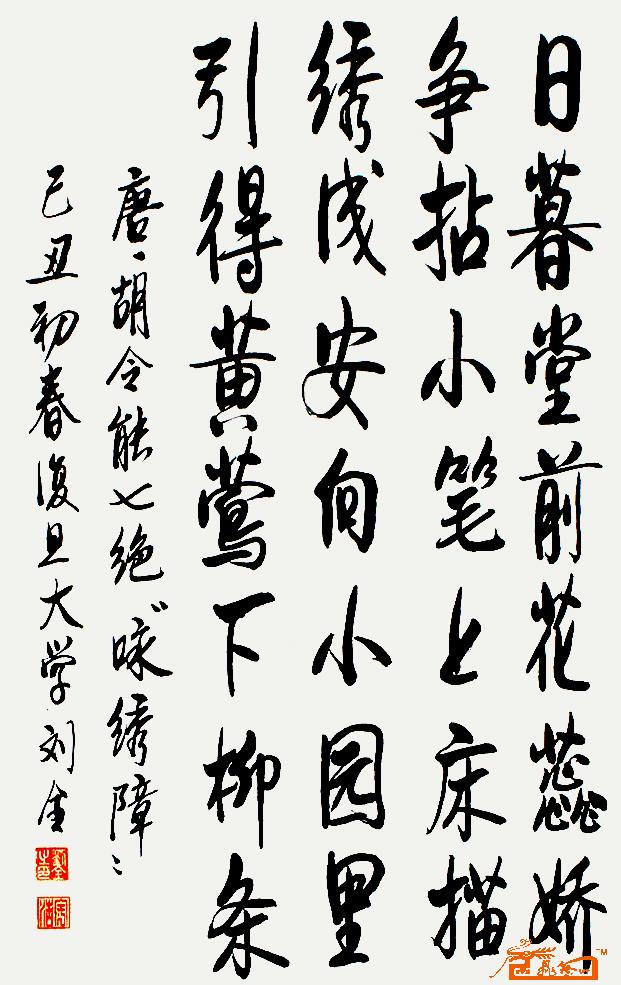 日暮堂前花蕊娇
争拈小笔上床描
绣成安向小园里
引得黄莺下柳条
唐、胡令能七绝“咏绣障”
己丑初春復旦大学刘金
TM